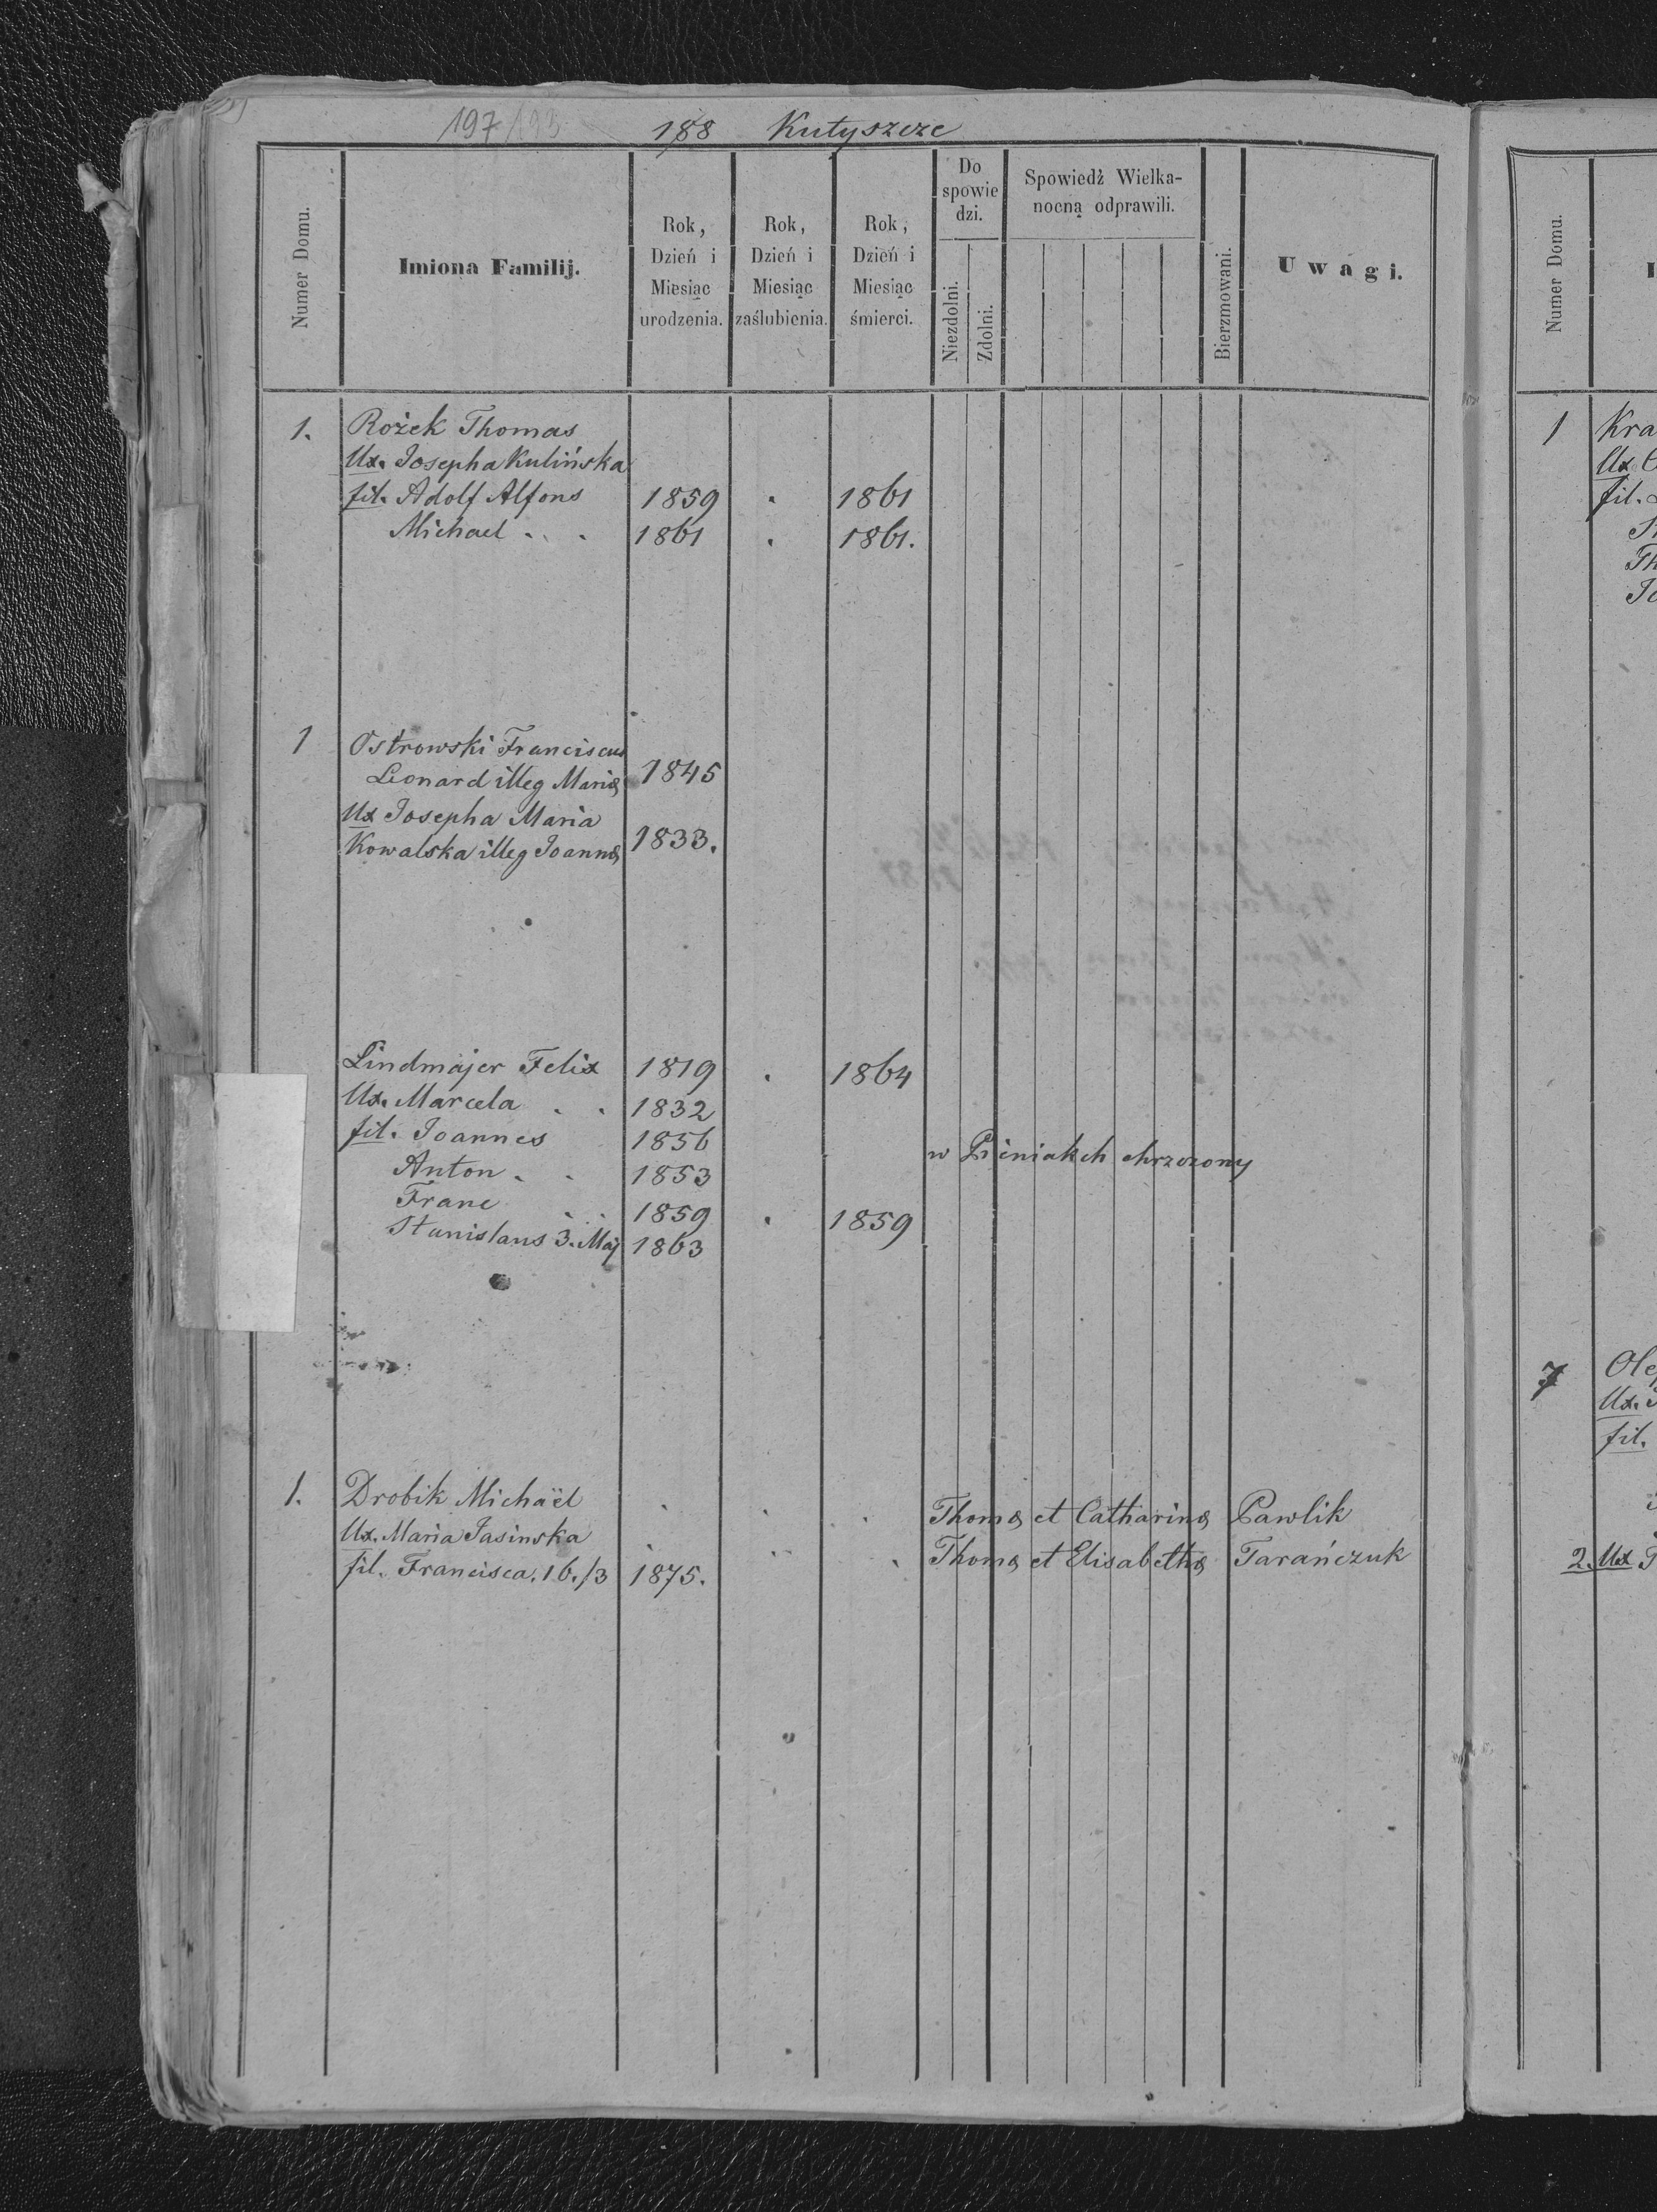 197/193 188 Kutyszcze
Numer Domu.
Imiona Familij.
Rok, Dzień i Miesiąc urodzenia.
Rok, Dzień i Miesiąc zaślubienia.
Rok, Dzień i Miesiąc śmierci.
Do spowie dzi.
Niezdolni.
Zdolni.
Spowiedź Wielka-
nocną odprawili.
Bierzmowani.
Uwagi.
1. Rożek Thomas
Ux. Josepha Kulińska
fil. Adolf Alfons 1859 . 1861
Michael . . 1861 . 1861.
1 Ostrowski Franciscus
Leonard illeg Mariæ 1845
Ux Josepha Maria
Kowalska illeg Joannæ 1833.
Lindmajer Felix 1819 . 1864
Ux. Marcela . . 1832
fil. Joannes 1856 w Pieniakch chrzczony
Anton . . 1853
Franc . . 1859 . 1859
Stanislaus 3. Maj 1863
1. Drobik Michaël . . . Thomæ et Catharinæ Pawlik
Ux. Maria Jasinska . . . Thomæ et Elisabethæ Tarańczuk
fil. Francisca. 16./3 1875.
Numer Domu.
1 Kra
Ux
fil.
Th
Jo
7 Ole
Ux.
fil.
2. Ux